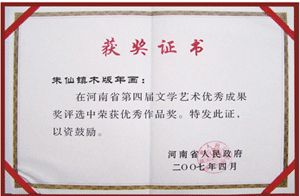 获奖证书
朱仙镇木版年画：
在河南省第四届文学艺术优秀成果
奖评选中荣获优秀作品奖。特发此证，
以资鼓励。
河南省人民政府
二〇〇七年四月